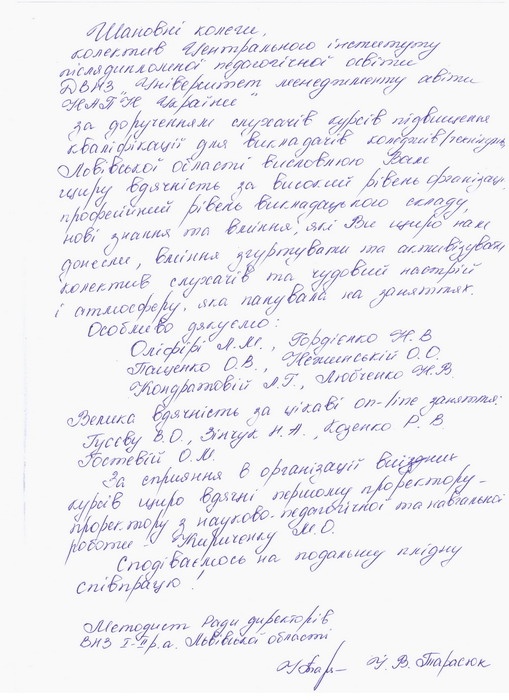 Шановні колеги,
колектив Центрального інституту
післядипломної педагогічної освіти
ДВНЗ „Університет менеджменту освіти
НАПН України"
за дорученням слухачів курсів підвищення
кваліфікації для викладачів коледжів/технікумів
Львівської області висловлюю Вам
щиру вдячність за високий рівень організації,
професійний рівень викладацького складу,
нові знання та вміння, які Ви щиро нам
донесли, вміння згуртувати та активізувати
колектив слухачів та чудовий настрій
і атмосферу, яка панувала на заняттях.
Особливо дякуємо:
Оліфірі Л.М., Гордієнко Н.В
Пащенко О.В., Нежинській О.О.
Кондратовій Л.Г., Любченко Н.В.
Велика вдячність за цікаві on-line заняття:
Гусєву В.О., Зінчук Н.А., Козенко Р.В
Гостевій О.М.
За сприяння в організації виїзних
курсів щиро вдячні першому проректору -
проректору з науково-педагогічної та навчальної
роботи - Кириченку М.О.
Сподіваємось на подальшу плідну
співпрацю!
Методист Ради директорів
ВНЗ I-II р.а. Львівської області
У.В. Тарасюк